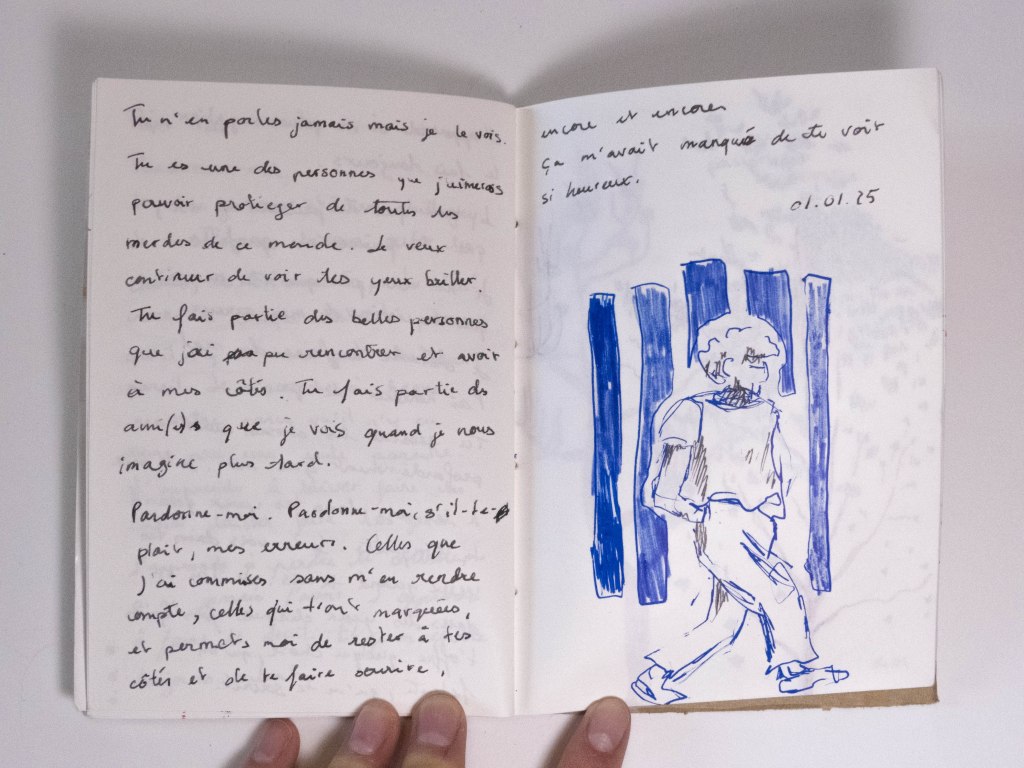 Tu n'en parles jamais mais je le vois.
Tu es une des personnes que j'aimerais
pouvoir protéger de toutes les
merdes de ce monde. Je veux
continuer de voir tes yeux briller.
Tu fais partie des belles personnes
que j'ai pu rencontrer et avoir
à mes côtés. Tu fais partie des
ami(e)s que je vois quand je nous
imagine plus tard.
Pardonne-moi. Pardonne-moi, s'il-te-
plaît, mes erreurs. Celles que
j'ai commises sans m'en rendre
compte, celles qui t'ont marquées,
et permets moi de rester à tes
côtés et de te faire sourire,
encore et encore.
Ça m'avait manqué de te voir
si heureux.
01.01.25